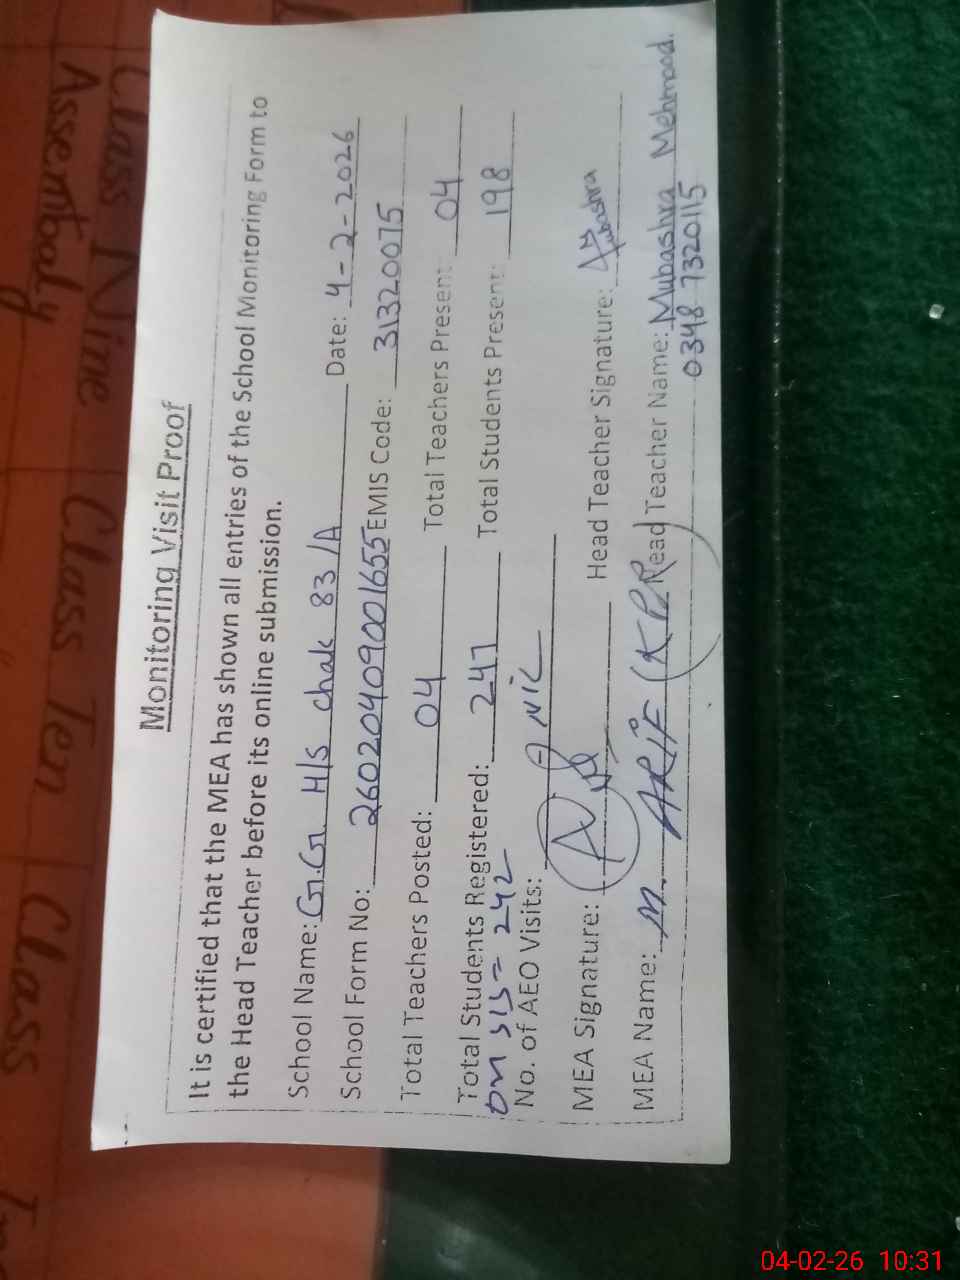 Monitoring Visit Proof
It is certified that the MEA has shown all entries of the School Monitoring Form to
the Head Teacher before its online submission.
School Name: G.G. H/S chak 83/A Date: 4-2-2026
School Form No: 260204090016 55 EMIS Code: 31320075
Total Teachers Posted: 04 Total Teachers Present: 04
Total Students Registered: 247 Total Students Present: 198
on SIS = 242
No. of AEO Visits: Nil
MEA Signature: Head Teacher Signature: Mubashra
MEA Name: M. ARIF (KPR) Head Teacher Name: Mubashra Mehmood.
0348 7320115
Class Nine Class Ten Class
Assembly
04-02-26 10:31